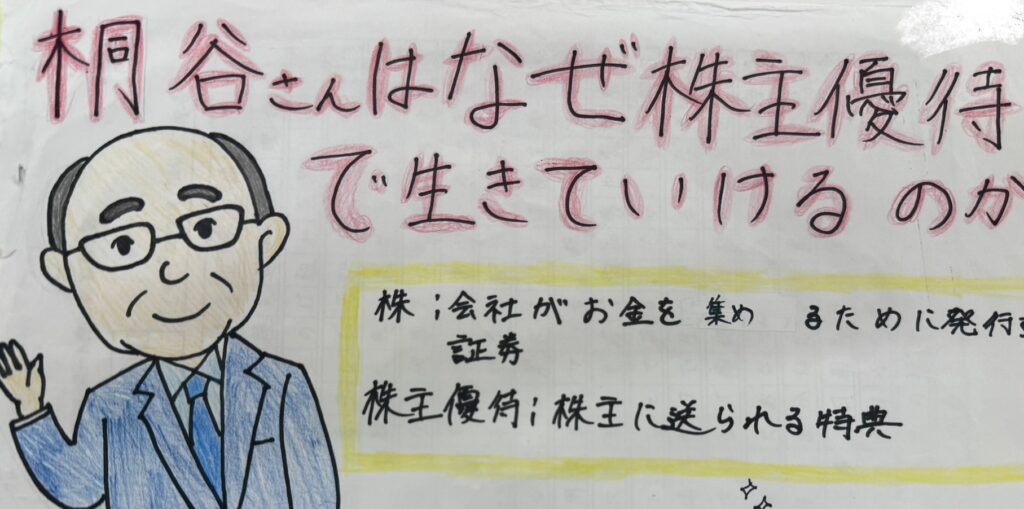 桐谷さんはなぜ株主優待
で生きていけるのか
株;会社がお金を集めるために発行
証券
株主優待;株主に送られる特典